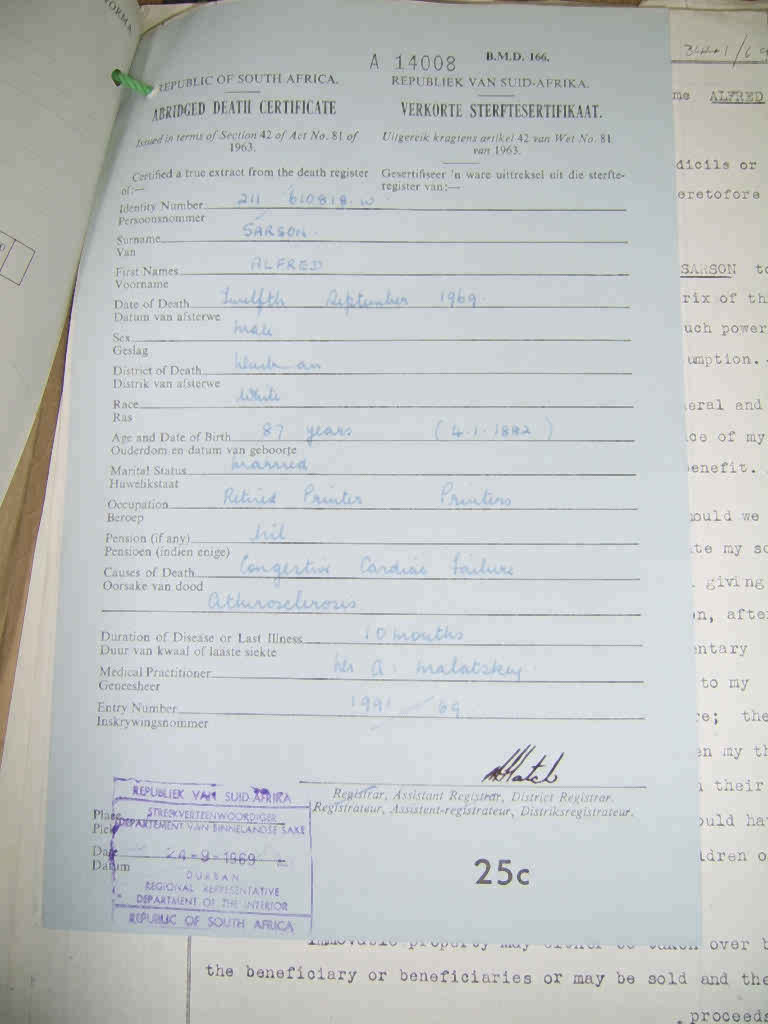 A 14008 B.M.D. 166.
REPUBLIC OF SOUTH AFRICA. REPUBLIEK VAN SUID-AFRIKA.
ABRIDGED DEATH CERTIFICATE VERKORTE STERFTESERTIFIKAAT.
Issued in terms of Section 42 of Act No. 81 of 1963. Uitgereik kragtens artikel 42 van Wet No. 81 van 1963.
Certified a true extract from the death register of:— Gesertifiseer 'n ware uittreksel uit die sterfte-register van:—
Identity Number 211 610818 W
Persoonsnommer
Surname SARSON
Van
First Names ALFRED
Voorname
Date of Death Twelfth September 1969
Datum van afsterwe
Sex Male
Geslag
District of Death
Distrik van afsterwe
Race White
Ras
Age and Date of Birth 87 years (4.1.1882)
Ouderdom en datum van geboorte
Marital Status Married
Huwelikstaat
Occupation Retired Printer Printers
Beroep
Pension (if any) Nil
Pensioen (indien enige)
Causes of Death Congestive Cardiac Failure
Oorsake van dood
Atherosclerosis
Duration of Disease or Last Illness 10 months
Duur van kwaal of laaste siekte
Medical Practitioner A. Malatskey
Geneesheer
Entry Number 1991 69
Inskrywingsnommer
Registrar, Assistant Registrar, District Registrar.
Registrateur, Assistent-registrateur, Distriksregistrateur.
Place
Plek
Date
Datum
REPUBLIEK VAN SUID AFRIKA
STREEKVERTEENWOORDIGER
DEPARTEMENT VAN BINNELANDSE SAKE
24-9-1969
DURBAN
REGIONAL REPRESENTATIVE
DEPARTMENT OF THE INTERIOR
REPUBLIC OF SOUTH AFRICA
25c
ALFRED
dicils or
eretofore
SARSON to
rix of th
uch power
umption.
eral and
ce of my
enefit.
ould we
te my so
giving
on, after
entary
to my
re; the
en my th
their
ould ha
ldren o
immovable property may either be taken over b
the beneficiary or beneficiaries or may be sold and the
proceeds